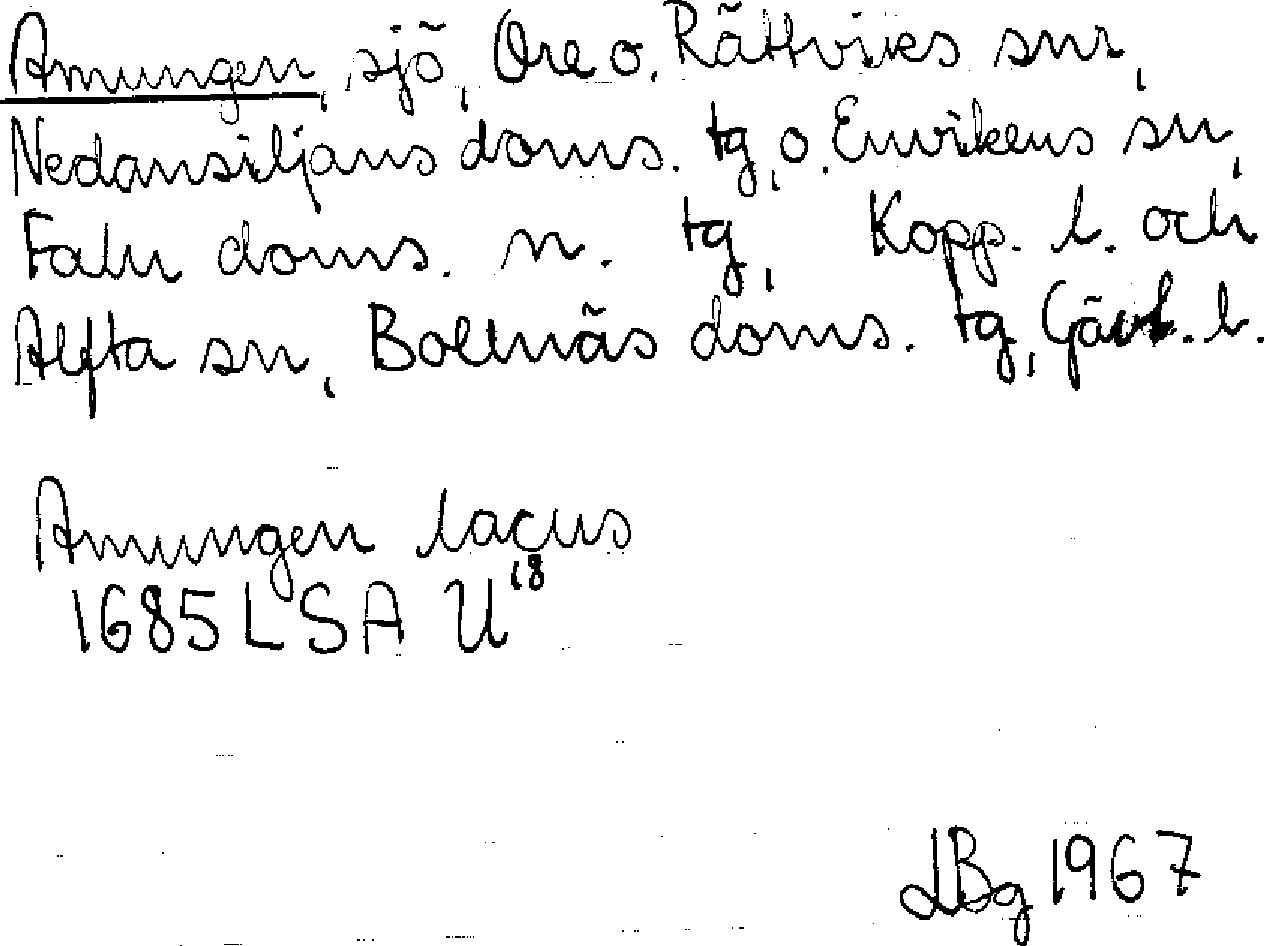 Amungen, sjö, Ore o. Rättviks snr,
Nedansiljans doms. tg, o. Envikens sn,
Falu doms. n. tg, Kopp. l. och
Alfta sn, Bollnäs doms. tg, Gävl. l.
Amungen lacus
1685 LSA U¹⁸
LBg 1967